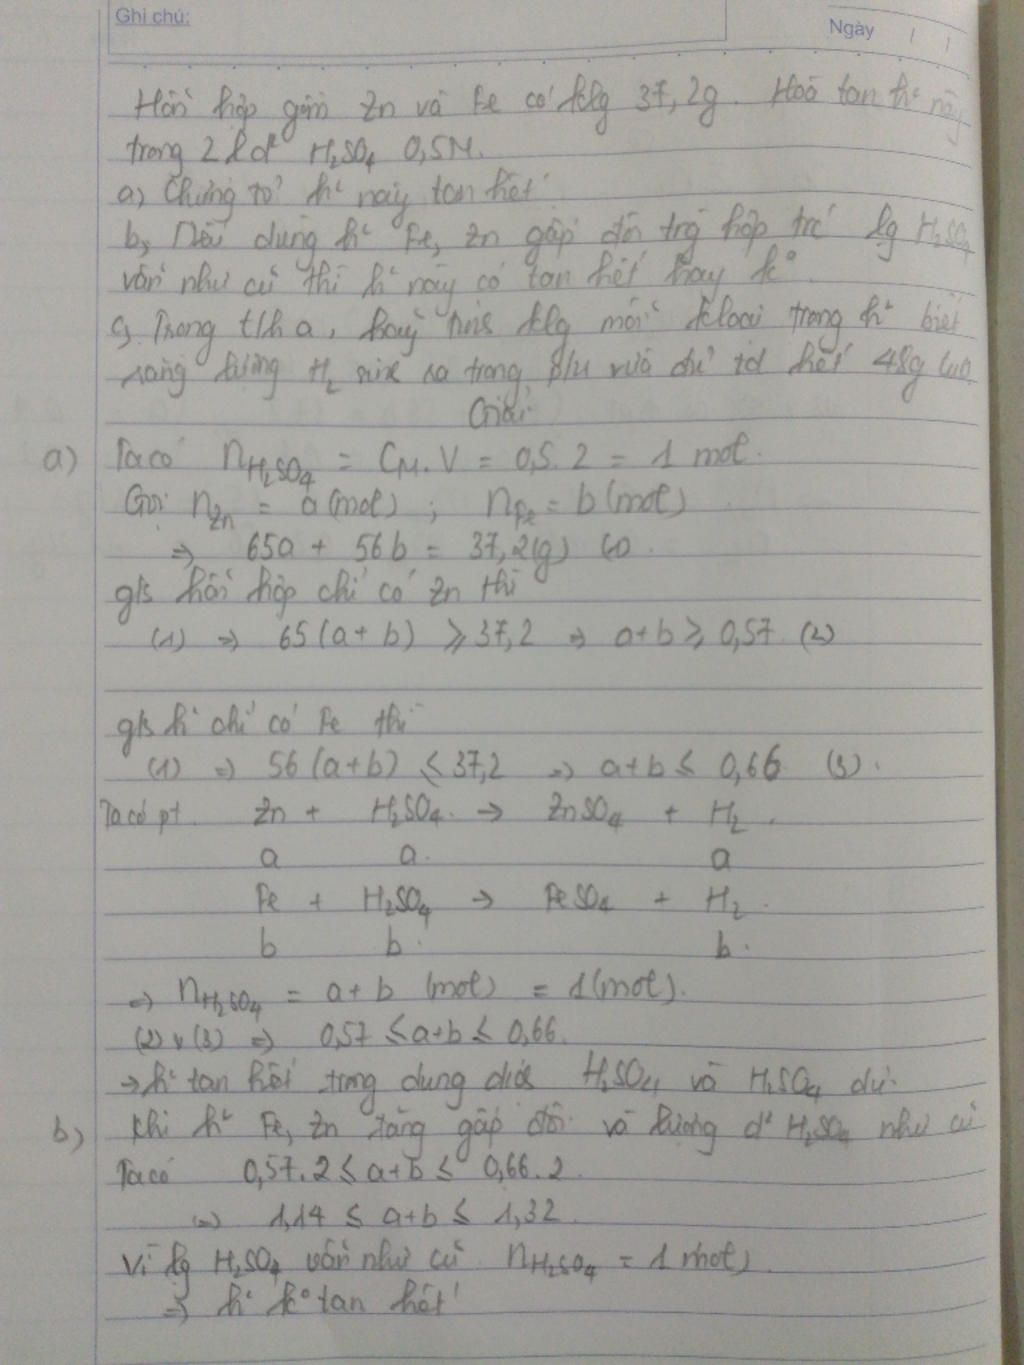 Ghi chú:
Ngày / /
Hỗn hợp gồm Zn và Fe có klg 37,2g. Hoà tan h² này
trong 2 l d² H₂SO₄ 0,5M.
a) Chứng tỏ h² này tan hết
b, Nếu dùng h² Fe, Zn gấp đôi trg hợp trc lg H₂SO₄
vẫn như cũ thì h² này có tan hết hay k°.
c, Trong t/h a, hãy tính klg mỗi kloại trong h² biết
rằng lượng H₂ sinh ra trong p/u vừa đủ td hết 48g CuO.
Giải
a) Ta có n H₂SO₄ = C_M. V = 0,5. 2 = 1 mol.
Gọi n Zn = a (mol) ; n Fe = b (mol)
=> 65a + 56b = 37,2(g) (1).
g/s hỗn hợp chỉ có Zn thì
(1) => 65 (a+ b) ⩾ 37,2 => a+b ⩾ 0,57 (2)
g/s h² chỉ có Fe thì
(1) => 56 (a+b) ≤ 37,2 => a+b ≤ 0,66 (3).
Ta có pt Zn + H₂SO₄. → ZnSO₄ + H₂.
a a. a
Fe + H₂SO₄ → FeSO₄ + H₂.
b b. b.
=> n H₂SO₄ = a + b (mol) = 1 (mol).
(2) v (3) => 0,57 ≤ a+b ≤ 0,66.
→ h² tan hết trong dung dịch H₂SO₄ và H₂SO₄ dư.
b) Khi h² Fe, Zn tăng gấp đôi và lượng d² H₂SO₄ như cũ
Ta có 0,57.2 ≤ a+b ≤ 0,66.2
=> 1,14 ≤ a+b ≤ 1,32.
Vì lg H₂SO₄ vẫn như cũ. n H₂SO₄ = 1 mol)
=> h² k° tan hết